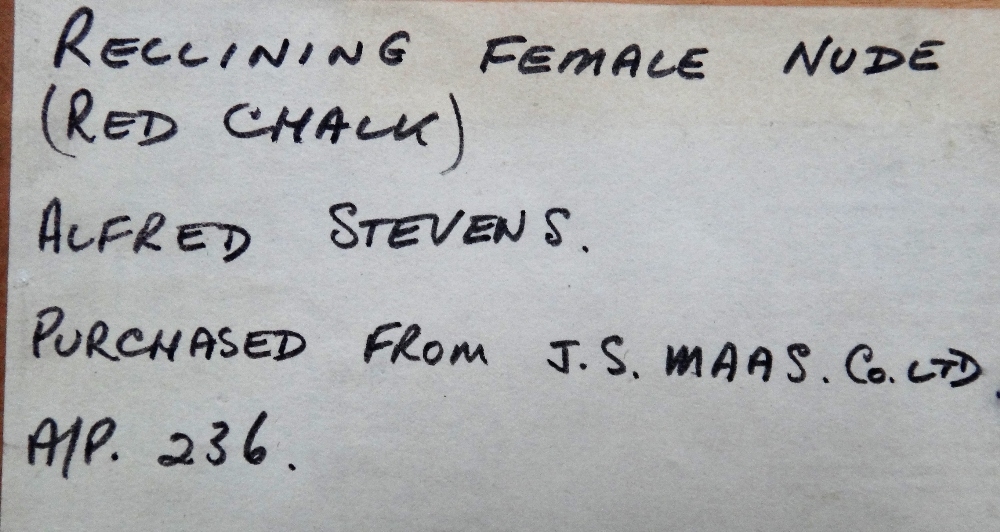 RECLINING FEMALE NUDE
(RED CHALK)
ALFRED STEVENS.
PURCHASED FROM J.S. MAAS. Co. LTD.
A/P. 236.